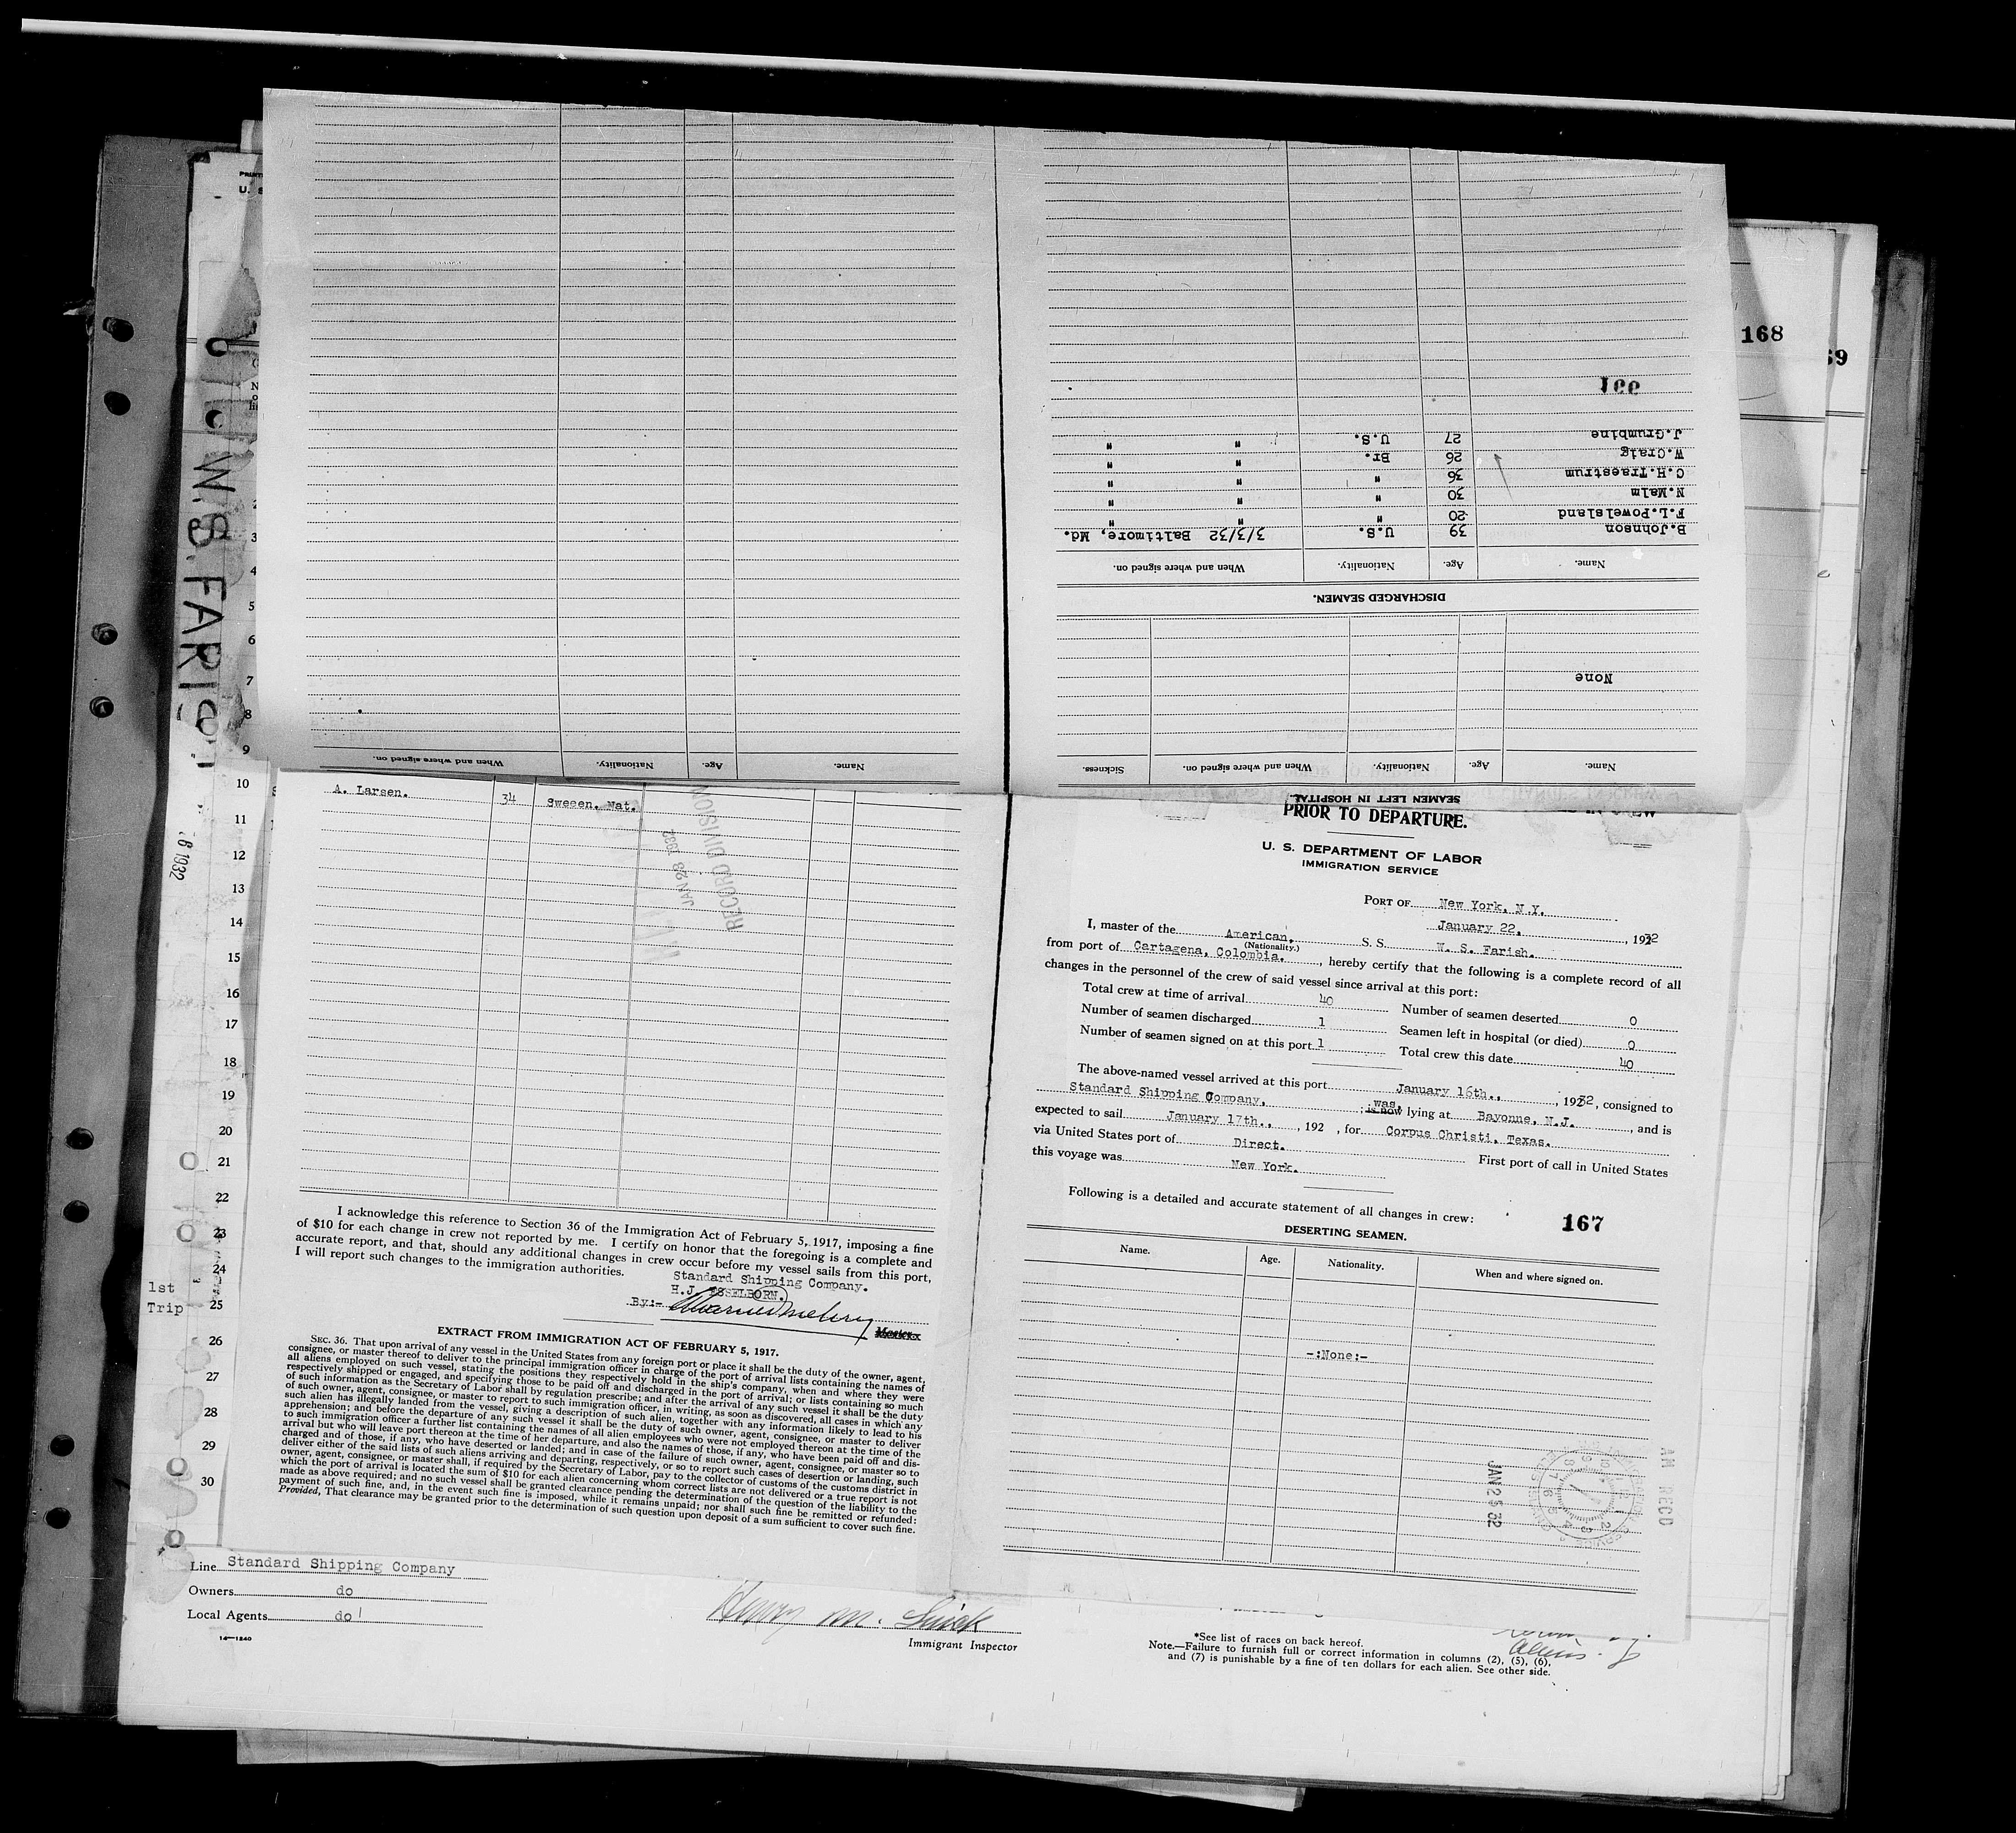 SEAMEN LEFT IN HOSPITAL.
Name. Age. Nationality. When and where signed on. Sickness.
None
DISCHARGED SEAMEN.
Name. Age. Nationality. When and where signed on.
B.Johnson 39 U.S. 3/3/32 Baltimore, Md.
F.L.Powelsland 20 " " "
N.Malm 30 " " "
C.H.Traestrum 36 " " "
W.Craig 26 Br. " "
J.Grumbine 27 U.S. " "
166
Name. Age. Nationality. When and where signed on.
168
69
U. S.
W.S. FARISH
6 1932
3
4
5
6
7
8
9
10
11
12
13
14
15
16
17
18
19
20
21
22
23
24
25
26
27
28
29
30
1st
Trip
A. Larsen. 34 Sweden. Nat.
RECORD DIVISION
JAN 28 1932
I acknowledge this reference to Section 36 of the Immigration Act of February 5, 1917, imposing a fine
of $10 for each change in crew not reported by me. I certify on honor that the foregoing is a complete and
accurate report, and that, should any additional changes in crew occur before my vessel sails from this port,
I will report such changes to the immigration authorities.
Standard Shipping Company.
H.J. ESSELBORN.
By:-
Master.
EXTRACT FROM IMMIGRATION ACT OF FEBRUARY 5, 1917.
SEC. 36. That upon arrival of any vessel in the United States from any foreign port or place it shall be the duty of the owner, agent,
consignee, or master thereof to deliver to the principal immigration officer in charge of the port of arrival lists containing the names of
all aliens employed on such vessel, stating the positions they respectively hold in the ship's company, when and where they were
respectively shipped or engaged, and specifying those to be paid off and discharged in the port of arrival; or lists containing so much
of such information as the Secretary of Labor shall by regulation prescribe; and after the arrival of any such vessel it shall be the duty
of such owner, agent, consignee, or master to report to such immigration officer, in writing, as soon as discovered, all cases in which any
such alien has illegally landed from the vessel, giving a description of such alien, together with any information likely to lead to his
apprehension; and before the departure of any such vessel it shall be the duty of such owner, agent, consignee, or master to deliver
to such immigration officer a further list containing the names of all alien employees who were not employed thereon at the time of the
arrival but who will leave port thereon at the time of her departure, and also the names of those, if any, who have been paid off and dis-
charged and of those, if any, who have deserted or landed; and in case of the failure of such owner, agent, consignee, or master so to
deliver either of the said lists of such aliens arriving and departing, respectively, or so to report such cases of desertion or landing, such
owner, agent, consignee, or master shall, if required by the Secretary of Labor, pay to the collector of customs of the customs district in
which the port of arrival is located the sum of $10 for each alien concerning whom correct lists are not delivered or a true report is not
made as above required; and no such vessel shall be granted clearance pending the determination of the question of the liability to the
payment of such fine, and, in the event such fine is imposed, while it remains unpaid; nor shall such fine be remitted or refunded:
Provided, That clearance may be granted prior to the determination of such question upon deposit of a sum sufficient to cover such fine.
PRIOR TO DEPARTURE.
U. S. DEPARTMENT OF LABOR
IMMIGRATION SERVICE
PORT OF New York, N.Y.
January 22, , 1932
I, master of the American, S. S. W. S. Farish.
(Nationality.)
from port of Cartagena, Colombia. , hereby certify that the following is a complete record of all
changes in the personnel of the crew of said vessel since arrival at this port:
Total crew at time of arrival 40 Number of seamen deserted 0
Number of seamen discharged 1 Seamen left in hospital (or died) 0
Number of seamen signed on at this port 1 Total crew this date 40
The above-named vessel arrived at this port January 16th., , 1932, consigned to
Standard Shipping Company, ; was, is now lying at Bayonne, N.J. , and is
expected to sail January 17th., , 192 , for Corpus Christi, Texas.
via United States port of Direct. First port of call in United States
this voyage was New York.
Following is a detailed and accurate statement of all changes in crew:
167
DESERTING SEAMEN.
Name. Age. Nationality. When and where signed on.
-:None:-
JAN 25 32
AM RECD
Line Standard Shipping Company
Owners do
Local Agents do
14—1240
Henry M.
Immigrant Inspector
*See list of races on back hereof.
Note.—Failure to furnish full or correct information in columns (2), (5), (6),
and (7) is punishable by a fine of ten dollars for each alien. See other side.
Aliens